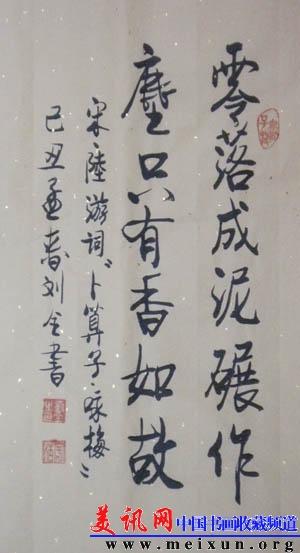 零落成泥碾作
塵只有香如故
宋陸游詞卜算子·咏梅
己丑孟春刘全書
美讯网 中国书画收藏频道
www.meixun.org